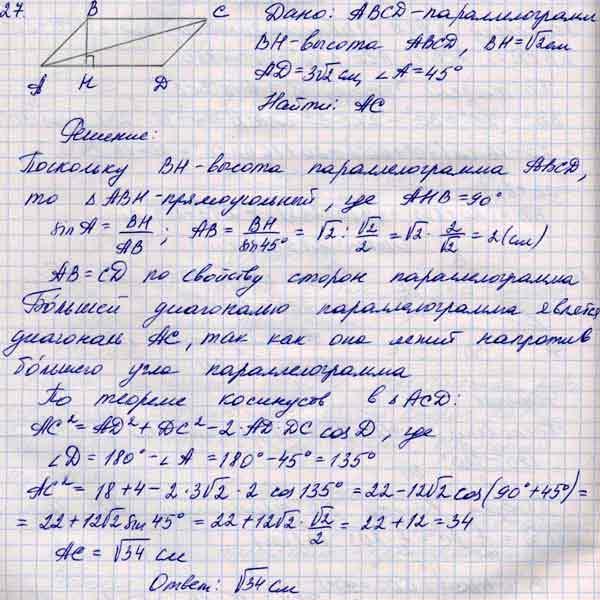 27.
B C
A H D
Дано: ABCD-параллелограмм
BH-высота ABCD, BH=√2см
AD=3√2 см, ∠A=45°
Найти: AC
Решение:
Поскольку BH-высота параллелограмма ABCD,
то △ABH-прямоугольный, где AHB=90°
sin A = BH/AB ; AB = BH/sin45° = √2 : √2/2 = √2 · 2/√2 = 2 (см)
AB=CD по свойству сторон параллелограмма
Большей диагональю параллелограмма является
диагональ AC, так как она лежит напротив
большего угла параллелограмма
По теореме косинусов в △ACD:
AC²=AD²+DC²-2·AD·DC cos D, где
∠D=180°-∠A=180°-45°=135°
AC²=18+4-2·3√2·2 cos 135°=22-12√2 cos(90°+45°)=
=22+12√2 sin 45°=22+12√2·√2/2=22+12=34
AC=√34 см
Ответ: √34 см